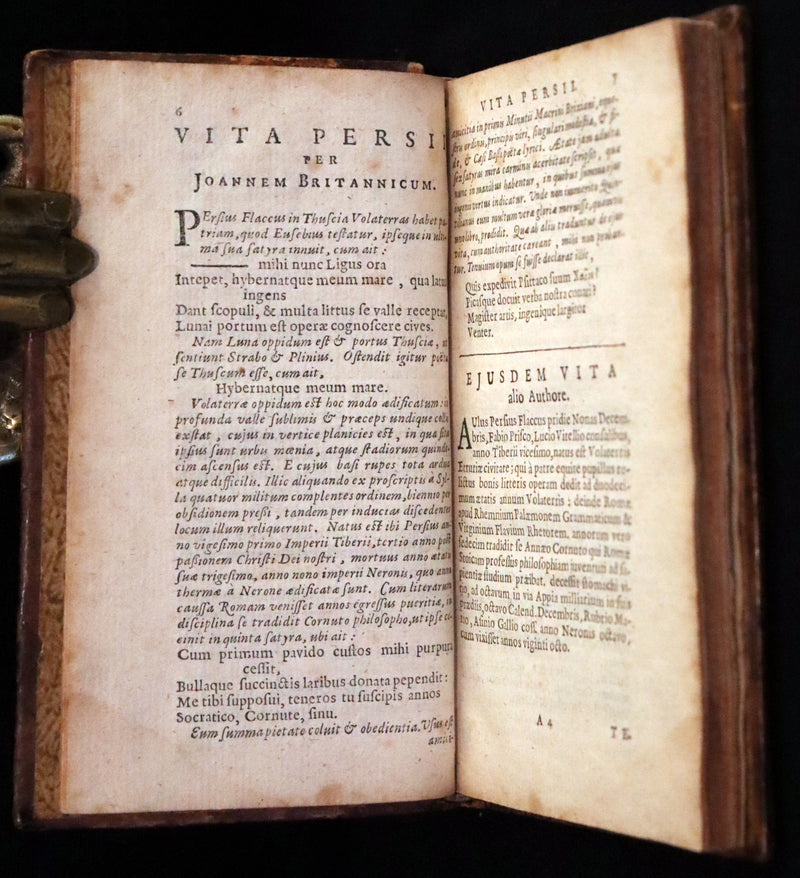 6
VITA PERSII
PER
JOANNEM BRITANNICUM.
PErſius Flaccus in Thuſcia Volaterras habet pa-
triam, quod Euſebius teſtatur, ipſeque in ulti-
ma ſua ſatyra innuit, cum ait:
mihi nunc Ligus ora
Intepet, hybernatque meum mare, qua latus
ingens
Dant ſcopuli, & multa littus ſe valle receptat,
Lunai portum eſt operæ cognoſcere cives.
Nam Luna oppidum eſt & portus Thuſciæ, ut
ſentiunt Strabo & Plinius. Oſtendit igitur poëta
ſe Thuſcum eſſe, cum ait,
Hybernatque meum mare.
Volaterræ oppidum eſt hoc modo ædificatum: in
profunda valle ſublimis & præceps undique collis
exſtat, cujus in vertice planicies eſt, in qua ſita
ipſius ſunt urbis mœnia, atque ſtadiorum quinde-
cim aſcenſus eſt. E cujus baſi rupes tota ardua
atque difficilis. Illic aliquando ex proſcriptis à Syl-
la quatuor militum complentes ordinem, biennio per
obſidionem preſſi, tandem per inducias diſcedentes
locum illum reliquerunt. Natus eſt ibi Perſius an-
no vigeſimo primo Imperii Tiberii, tertio anno poſt
paſſionem Chriſti Dei noſtri, mortuus anno ætatis
ſuæ trigeſimo, anno nono imperii Neronis, quo anno
thermæ à Nerone ædificatæ ſunt. Cum literarum
cauſſa Romam veniſſet annos egreſſus pueritiæ, in
diſciplina ſe tradidit Cornuto philoſopho, ut ipſe ce-
cinit in quinta ſatyra, ubi ait:
Cum primum pavido cuſtos mihi purpura
ceſſit,
Bullaque ſuccinctis laribus donata pependit:
Me tibi ſuppoſui, teneros tu ſuſcipis annos
Socratico, Cornute, ſinu.
Eum ſumma pietate coluit & obedientia. Uſus eſt
amici-
VITA PERSII. 7
amicitia in primis Minutii Macrini Briziani, eque-
ſtris ordinis, principis viri, ſingulari modeſtia, & fi-
de, & Caſi Baſi poëta lyrici. Ætate jam adulta
ſex ſatyras mira carminis acerbitate ſcripſit, quæ
nunc in manibus habentur, in quibus ſumma ejus
ingenii virtus indicatur. Unde non immerito Quin-
tilianus eum multum veræ gloriæ meruiſſe, quamvis
uno libro, prodidit. Quæ ab aliis traduntur de ejus
vita, cum authoritate careant, mihi non proban-
tur. Tenuium opum ſe fuiſſe declarat ille,
Quis expedivit Pſittaco ſuum Χαῖρε?
Picaſque docuit verba noſtra conari?
Magiſter artis, ingenique largitor
Venter.
EJUSDEM VITA
alio Authore.
AUlus Perſius Flaccus pridie Nonas Decem-
bris, Fabio Priſco, Lucio Vitellio conſulibus,
anno Tiberii viceſimo, natus eſt Volaterris
Etruriæ civitate; qui à patre equite pupillus re-
lictus bonis litteris operam dedit ad duodeci-
mum ætatis annum Volaterris: deinde Romæ
apud Rhemnium Palæmonem Grammaticum &
Virginium Flavium Rhetorem. annorum vero
ſedecim tradidit ſe Annæo Cornuto qui Romæ
Stoicam profeſſus philoſophiam juventuti ad ſa-
pientiæ ſtudium præibat. deceſſit ſtomachi vi-
tio, ad octavum, in via Appia milliarium in ſuis
prædiis, octavo Calend. Decembris, Rubrio Ma-
rio, Aſinio Gallio coſſ. anno Neronis octavo,
cum vixiſſet annos viginti octo.
A 4
TE.